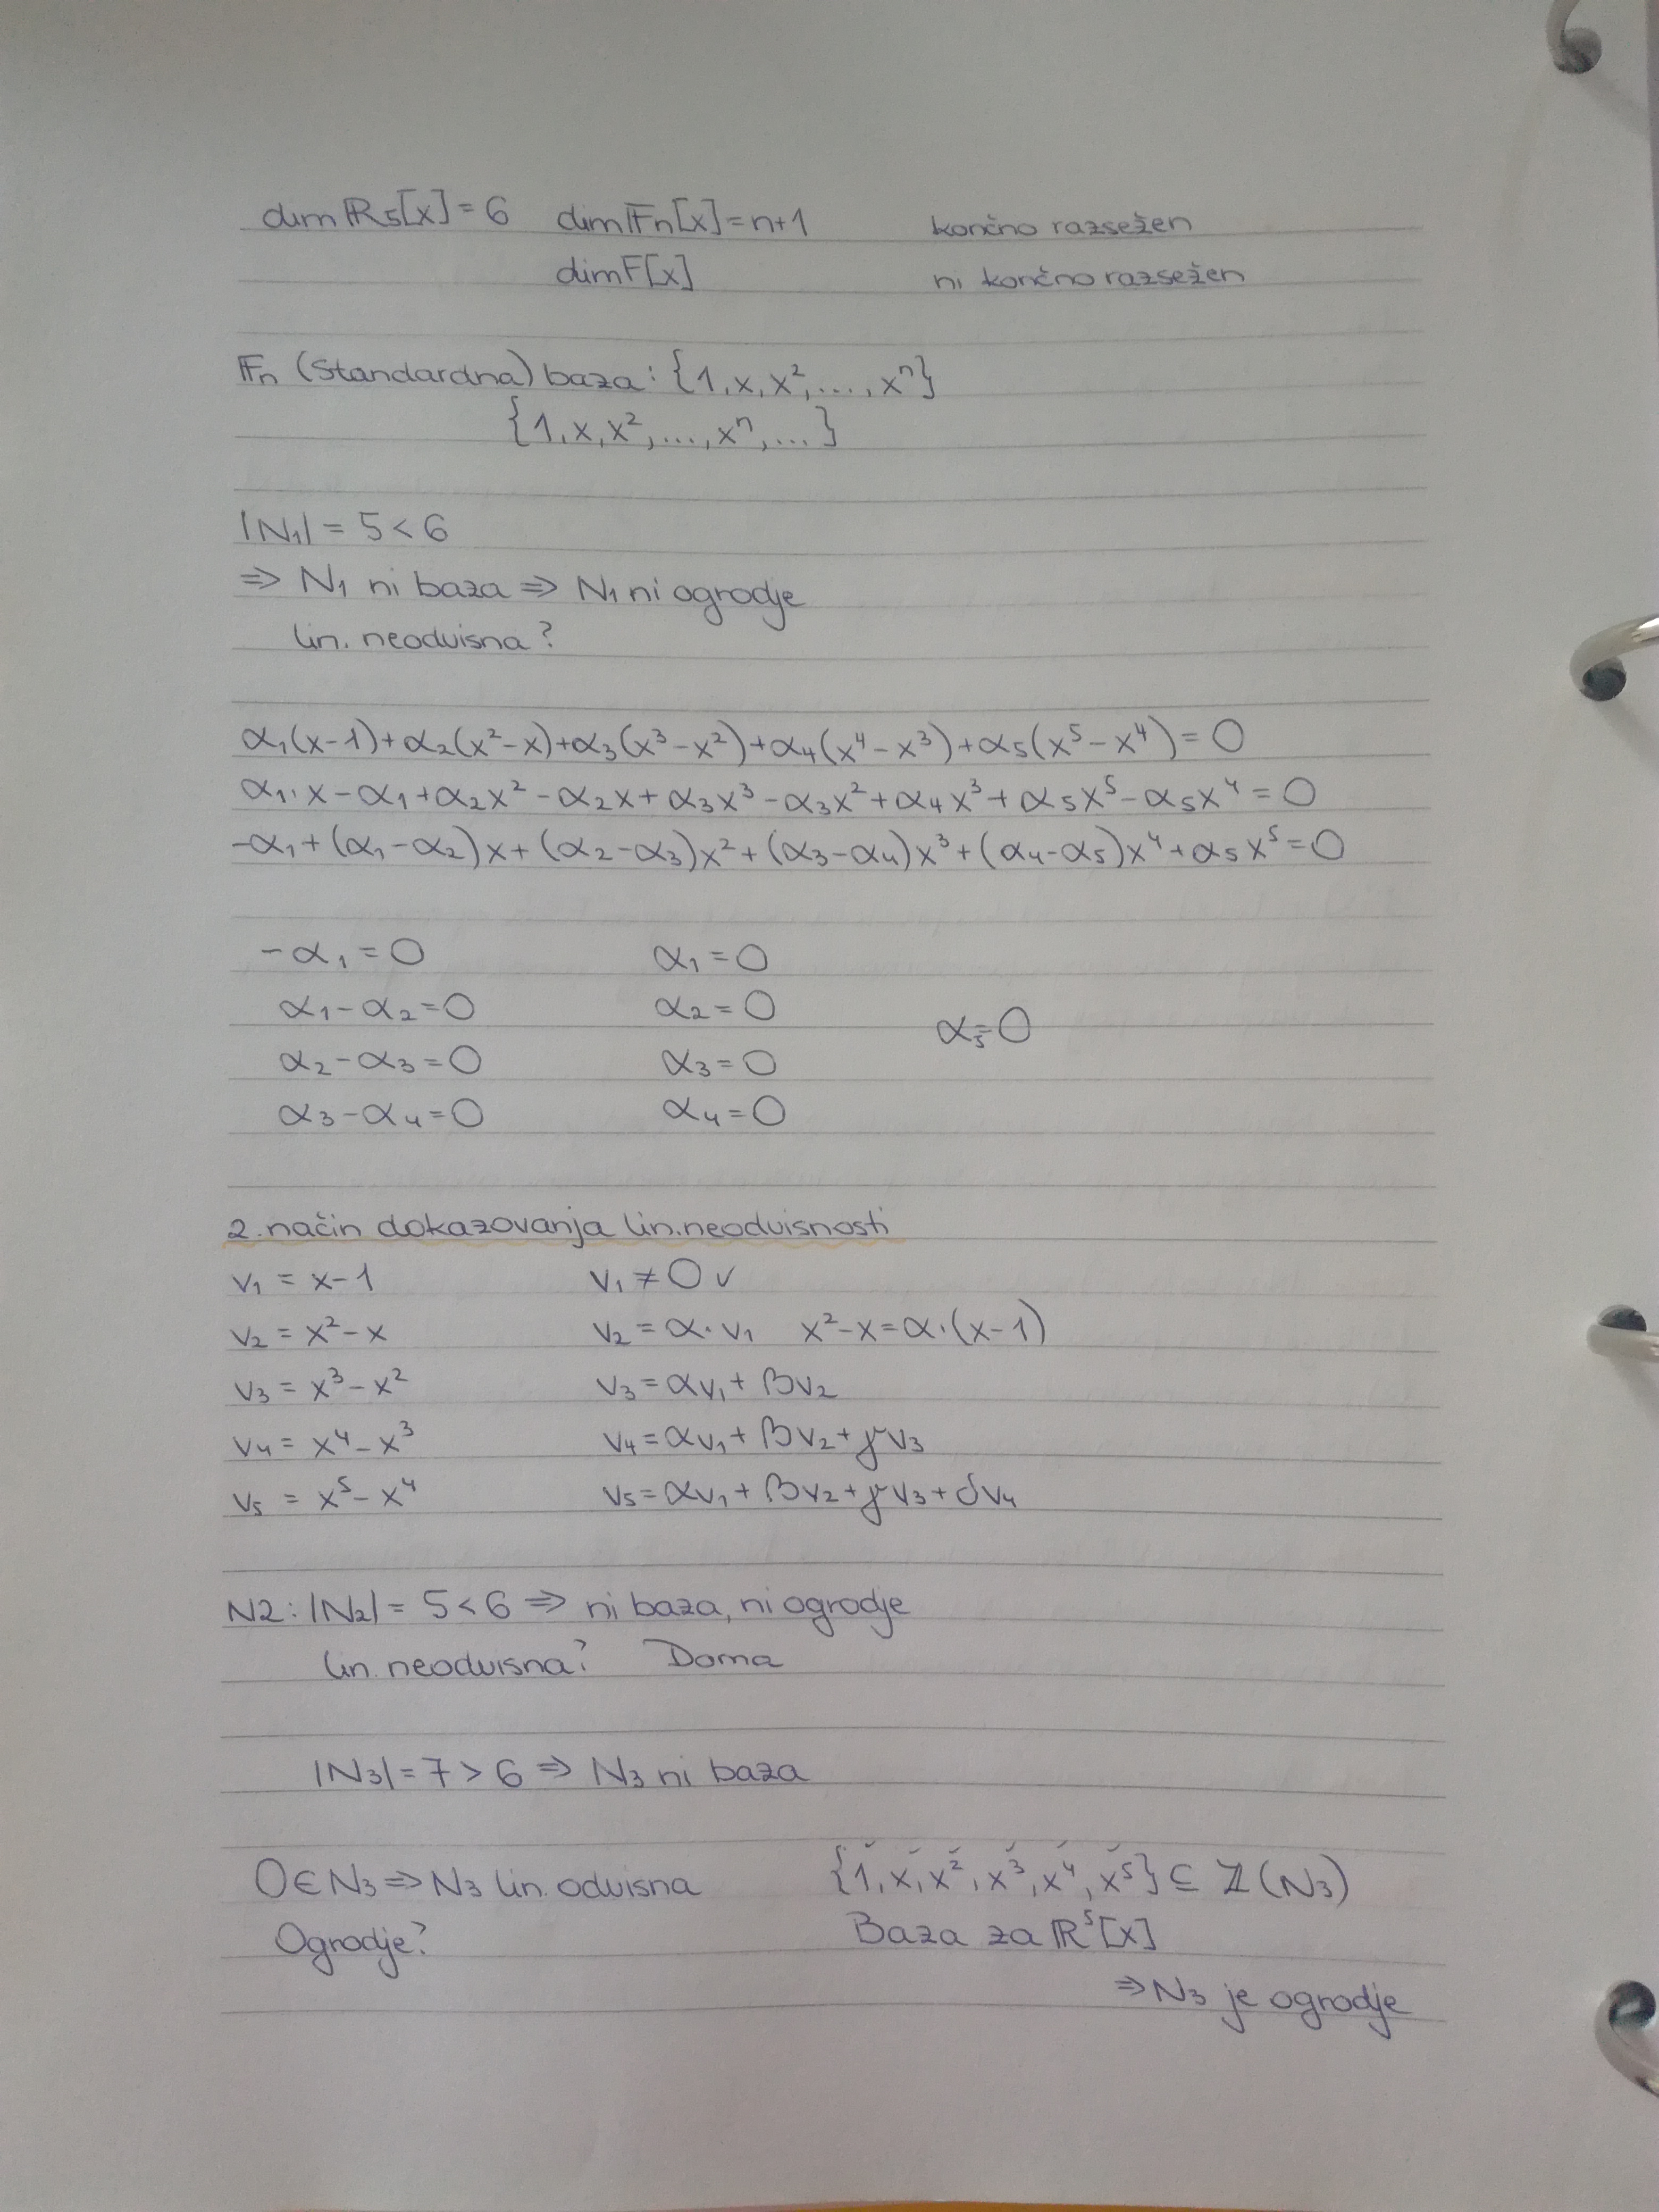 dim ℝ₅[x] = 6 dim 𝔽n[x] = n+1 končno razsežen
dim F[x] ni končno razsežen
𝔽n (standardna) baza: {1, x, x², ..., xⁿ}
{1, x, x², ..., xⁿ, ...}
|N₁| = 5 < 6
⇒ N₁ ni baza ⇒ N₁ ni ogrodje
lin. neodvisna?
α₁(x-1)+α₂(x²-x)+α₃(x³-x²)+α₄(x⁴-x³)+α₅(x⁵-x⁴)=0
α₁·x-α₁+α₂x²-α₂x+α₃x³-α₃x²+α₄x³+α₅x⁵-α₅x⁴=0
-α₁+(α₁-α₂)x+(α₂-α₃)x²+(α₃-α₄)x³+(α₄-α₅)x⁴+α₅x⁵=0
-α₁=0 α₁=0
α₁-α₂=0 α₂=0 α₅=0
α₂-α₃=0 α₃=0
α₃-α₄=0 α₄=0
2. način dokazovanja lin.neodvisnosti
v₁ = x-1 v₁ ≠ 0 ✓
v₂ = x²-x v₂ = α·v₁ x²-x=α·(x-1)
v₃ = x³-x² v₃=αv₁+βv₂
v₄ = x⁴-x³ v₄=αv₁+βv₂+γv₃
v₅ = x⁵-x⁴ v₅=αv₁+βv₂+γv₃+δv₄
N2: |N₂| = 5<6 ⇒ ni baza, ni ogrodje
lin. neodvisna? Doma
|N₃|=7>6 ⇒ N₃ ni baza
0∈N₃⇒N₃ lin. odvisna {1, x, x², x³, x⁴, x⁵} ⊆ ℤ(N₃)
Ogrodje? Baza za ℝ⁵[x]
⇒N₃ je ogrodje